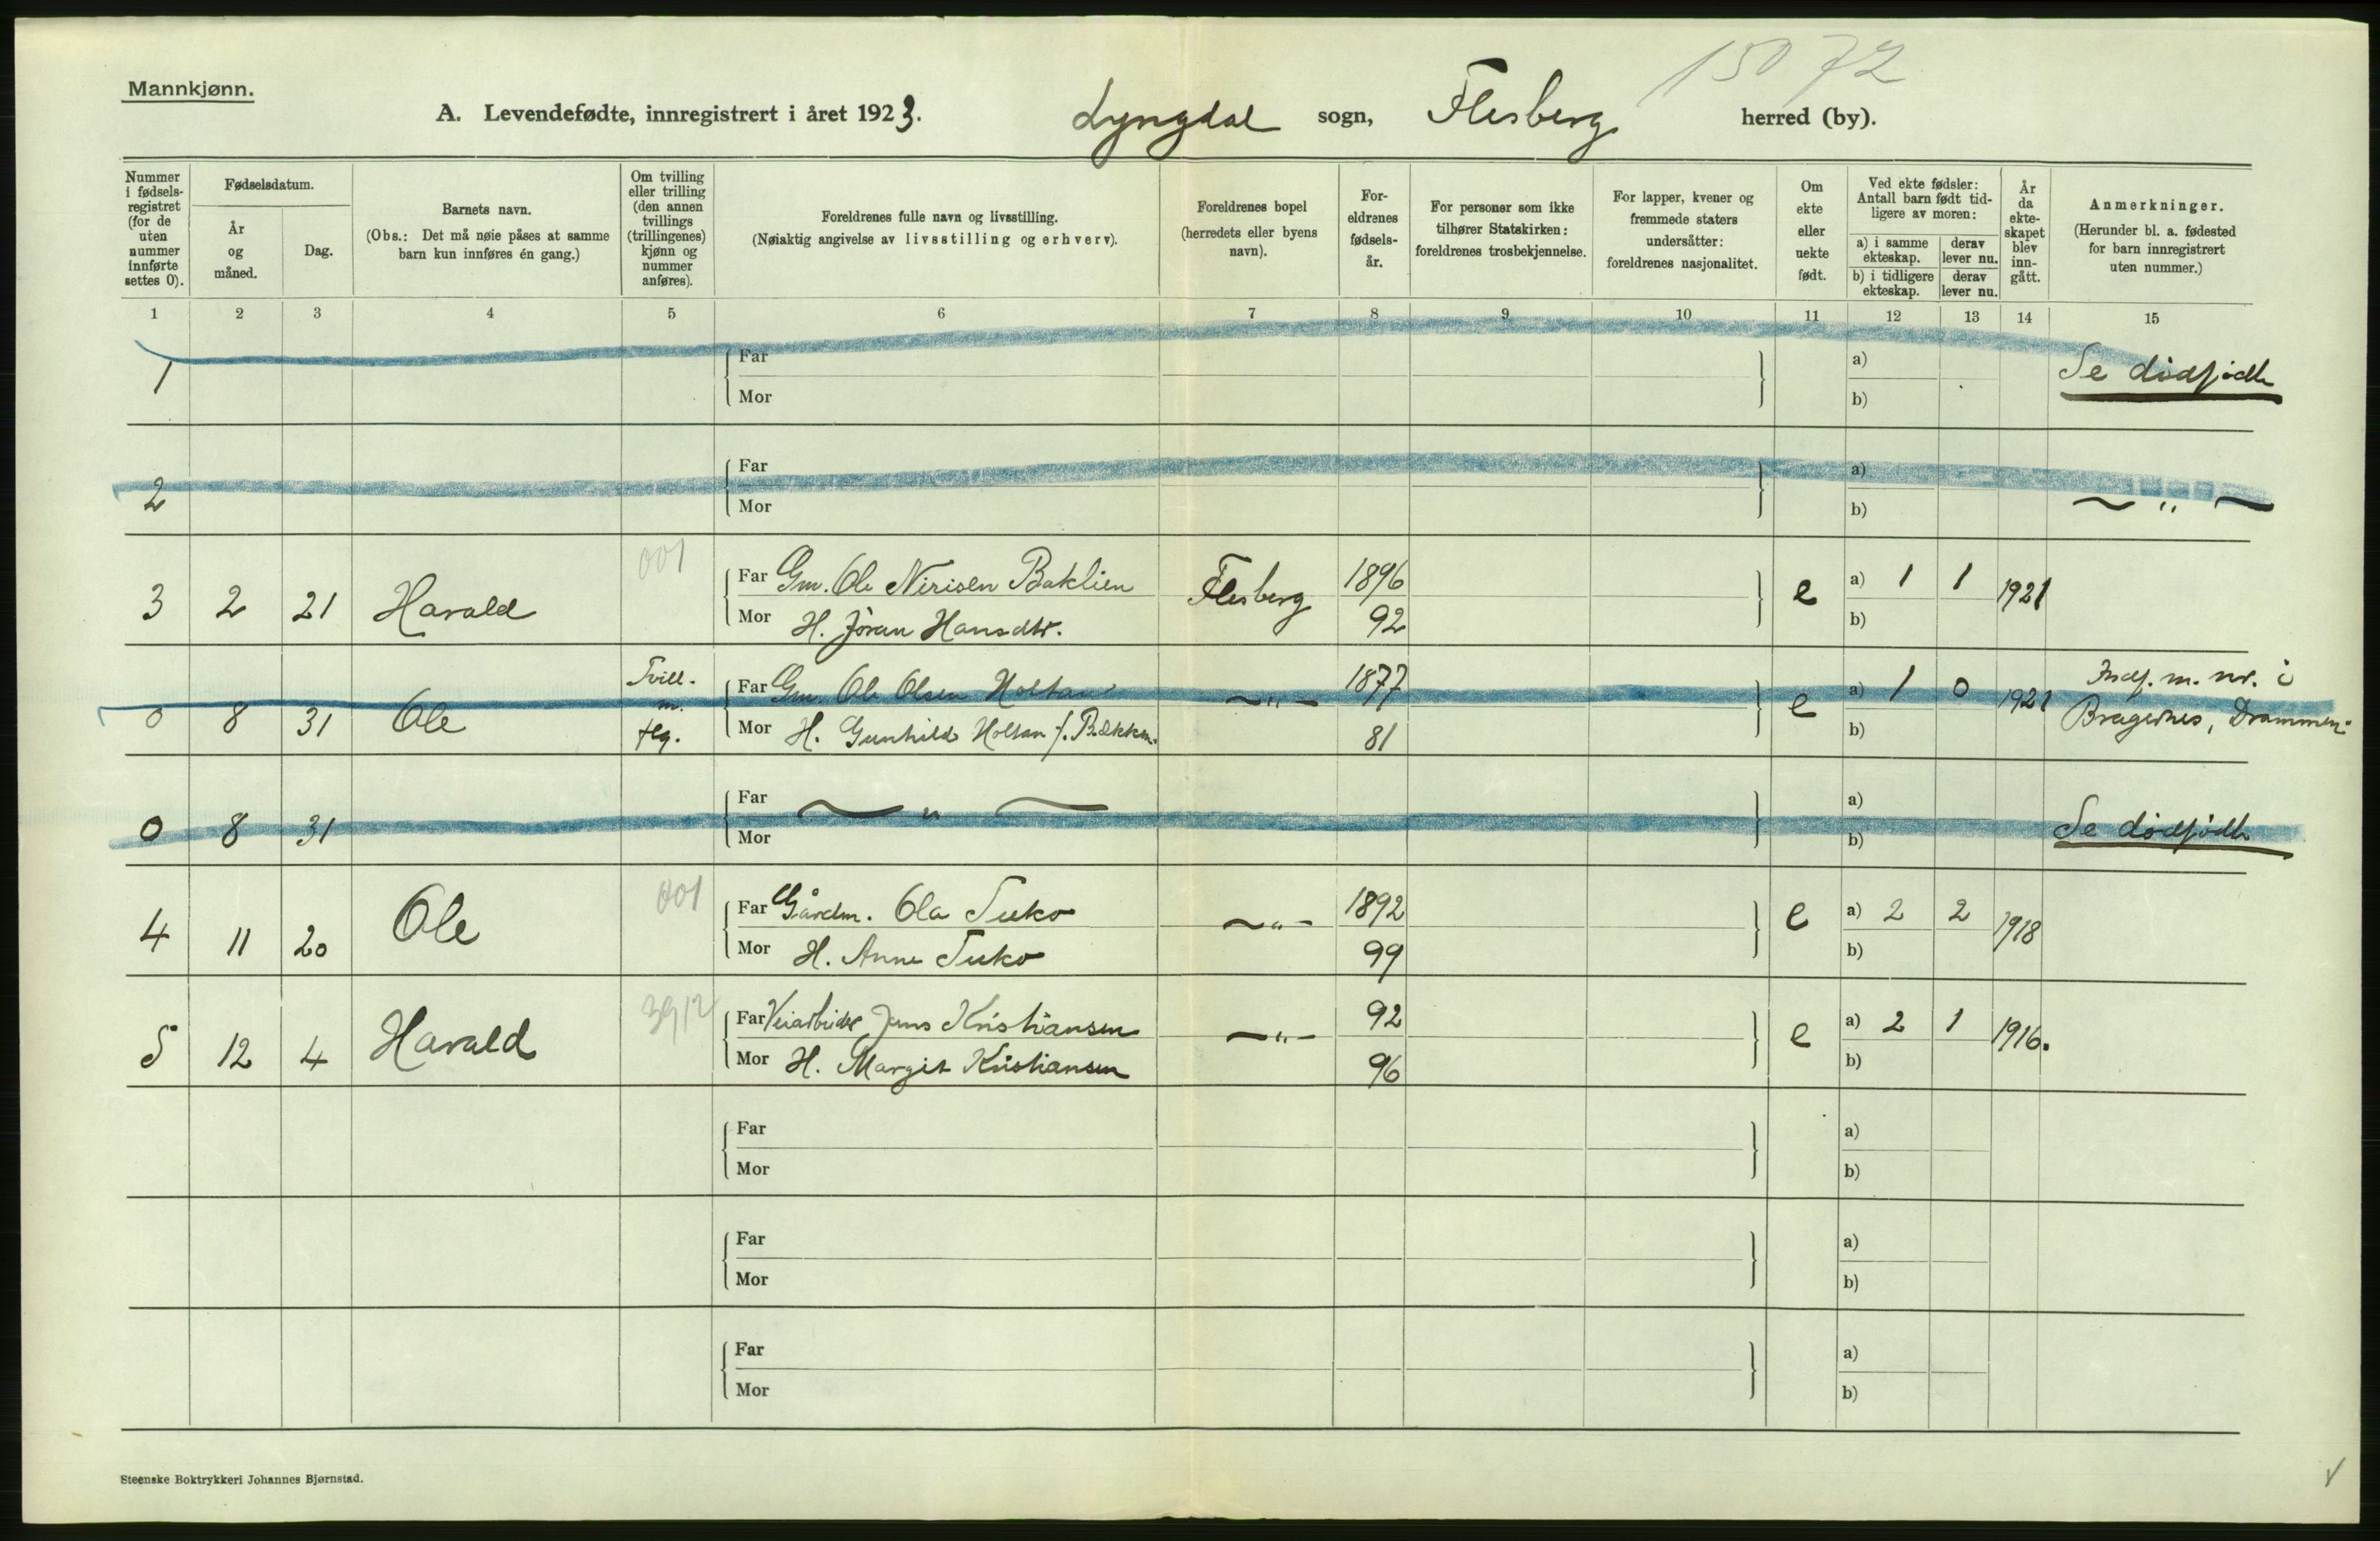 15072
Mannkjønn.
A. Levendefødte, innregistrert i året 1923. Lyngdal sogn, Flesberg herred (by).
Nummer i fødsels-registret (for de uten nummer innførte settes 0).
Fødselsdatum.
År og måned.
Dag.
Barnets navn.
(Obs.: Det må nøie påses at samme barn kun innføres én gang.)
Om tvilling eller trilling (den annen tvillings (trillingenes) kjønn og nummer anføres).
Foreldrenes fulle navn og livsstilling.
(Nøiaktig angivelse av livsstilling og erhverv).
Foreldrenes bopel (herredets eller byens navn).
For-eldrenes fødsels-år.
For personer som ikke tilhører Statskirken: foreldrenes trosbekjennelse.
For lapper, kvener og fremmede staters undersåtter: foreldrenes nasjonalitet.
Om ekte eller uekte født.
Ved ekte fødsler: Antall barn født tid-ligere av moren:
a) i samme ekteskap. derav lever nu.
b) i tidligere ekteskap. derav lever nu.
År da ekte-skapet blev inn-gått.
Anmerkninger.
(Herunder bl. a. fødested for barn innregistrert uten nummer.)
1 2 3 4 5 6 7 8 9 10 11 12 13 14 15
1 Far a) Se dødfødte
Mor b)
2 Far a) — " —
Mor b)
3 2 21 Harald 001 Far Gm. Ole Nirisen Baklien Flesberg 1896 e a) 1 1 1921
Mor H. Jöran Hansdtr. 92 b)
0 8 31 Ole Tvill. m. Far Gm. Ole Olsen Holtan — " — 1877 e a) 1 0 1921 m. nr. i
Mor H. Gunhild Holtan f. Bækken 81 b) Bragernes, Drammen.
0 8 31 Far — " — a) Se dødfødte
Mor b)
4 11 20 Ole 001 Far Gårdm. Ola Tuko — " — 1892 e a) 2 2 1918
Mor H. Anne Tuko 99 b)
5 12 4 Harald 3912 Far Veiarbeider Jens Kristiansen — " — 92 e a) 2 1 1916.
Mor H. Margit Kristiansen 96 b)
Far a)
Mor b)
Far a)
Mor b)
Far a)
Mor b)
Steenske Boktrykkeri Johannes Bjørnstad.